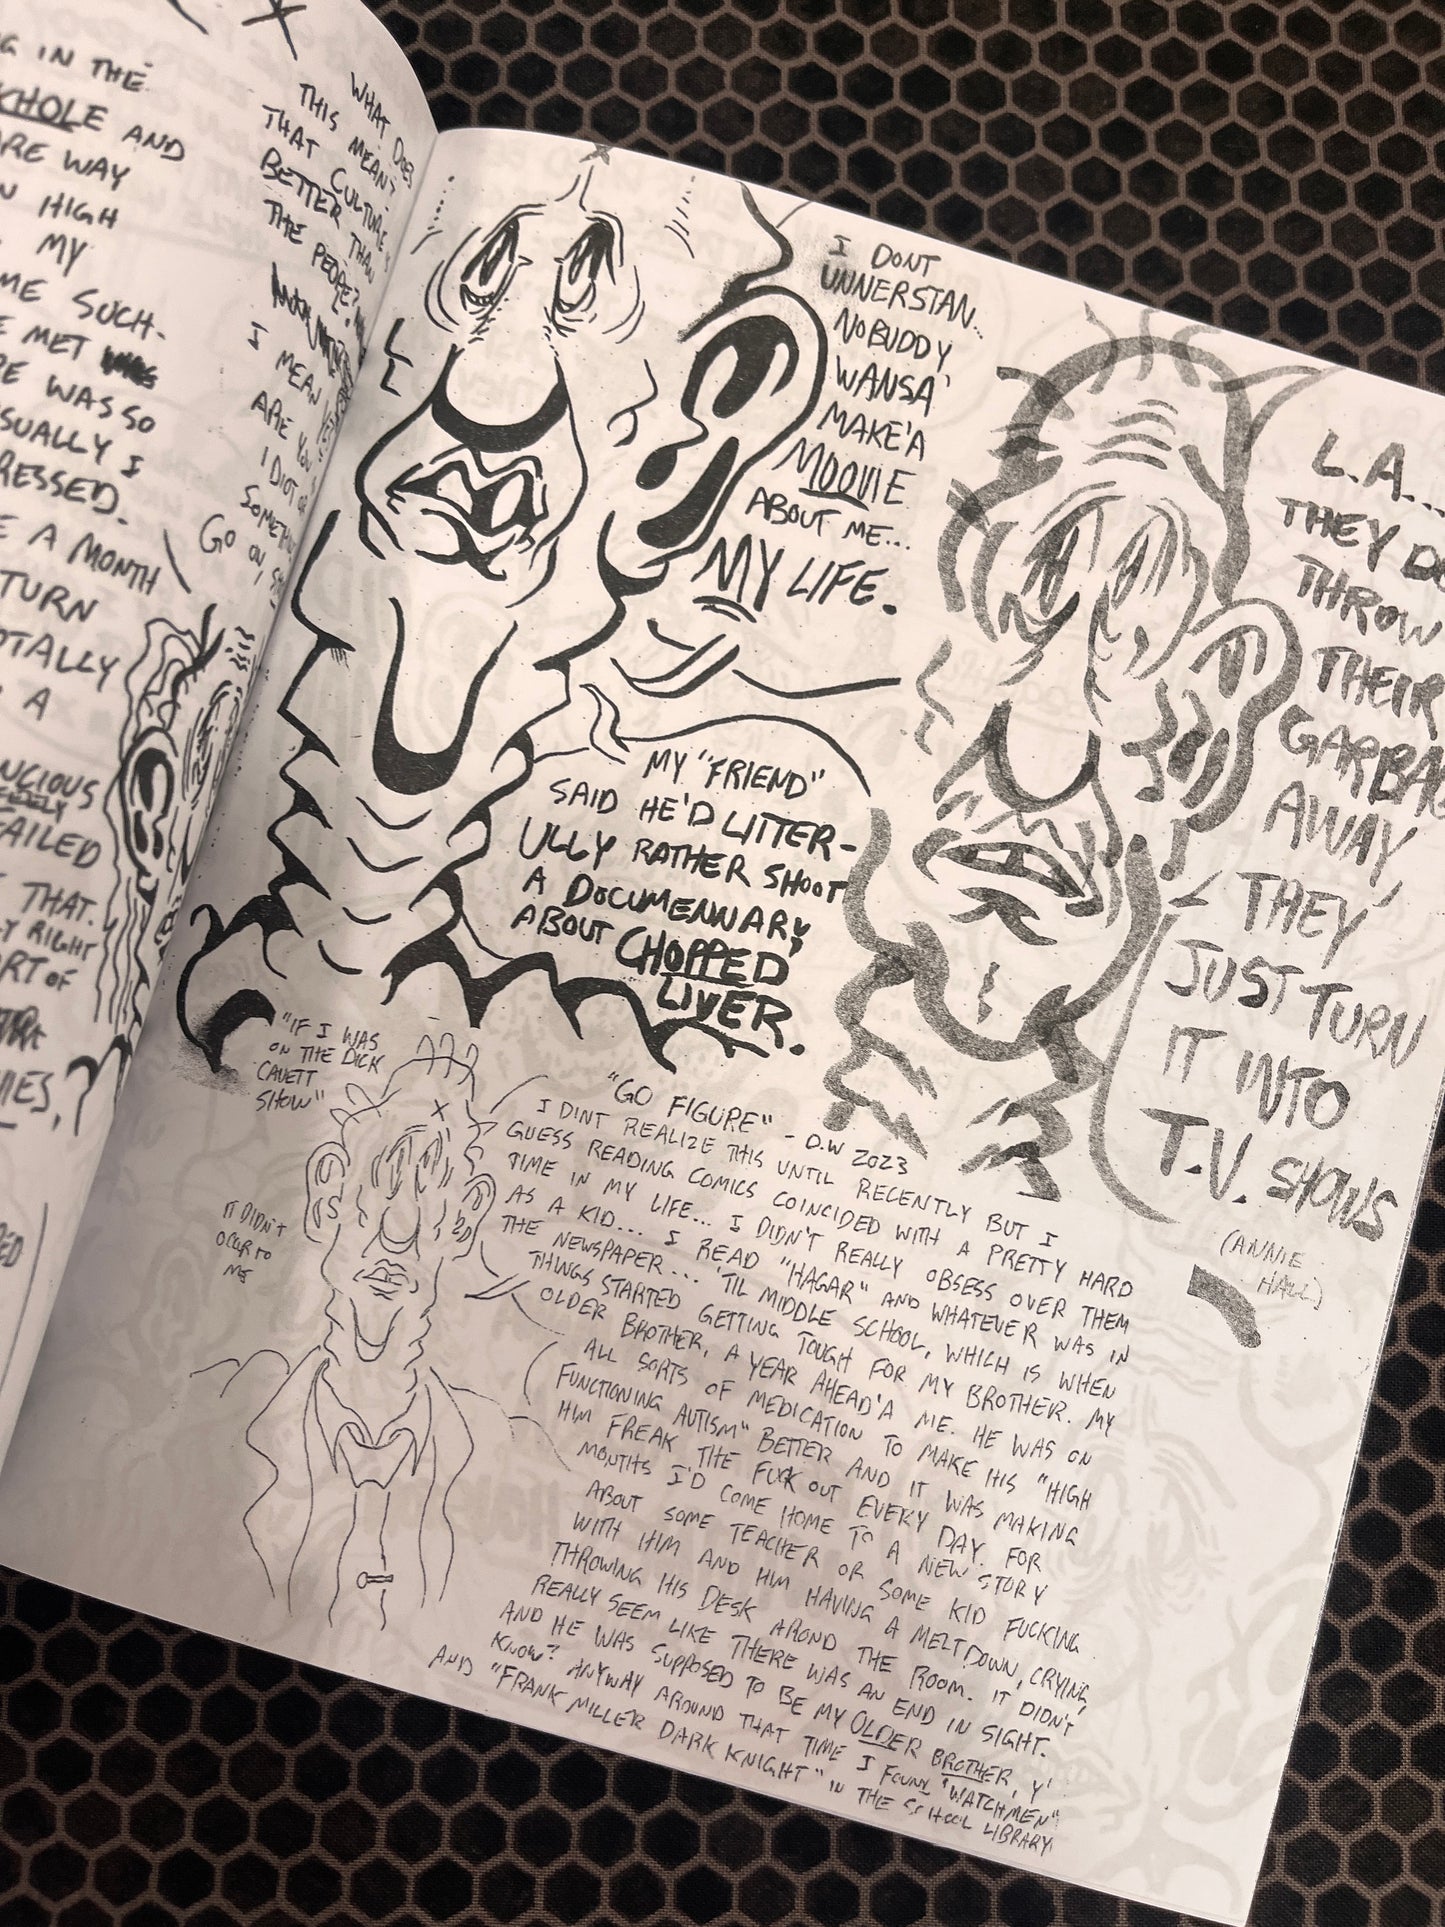 G IN THE
KHOLE AND
ARE WAY
N HIGH
MY
ME SUCH-
E MET
RE WAS SO
SUALLY I
RESSED.
E A MONTH
TURN
OTALLY
A
NCIOUS
FAILED
THAT.
Y RIGHT
ORT OF
IES,?
WHAT DOES
THIS MEAN?
THAT CULTURE IS
BETTER THAN
THE PEOPLE?
I MEAN
ARE YOU
IDIOT OR
SOMETHI
GO ON,
I DONT
UNNERSTAN...
NOBUDDY
WANSA'
MAKE'A
MOOVIE
ABOUT ME...
MY LIFE.
MY "FRIEND"
SAID HE'D LITTER-
ULLY RATHER SHOOT
A DOCUMENNARY
ABOUT CHOPPED
LIVER.
L.A...
THEY DO
THROW
THEIR
GARBAG
AWAY,
THEY
JUST TURN
IT INTO
T.V. SHOWS
(ANNIE
HALL)
"IF I WAS
ON THE DICK
CAVETT
SHOW"
IT DIDN'T
OCUR TO
ME
"GO FIGURE" - D.W 2023
I DINT REALIZE THIS UNTIL RECENTLY BUT I
GUESS READING COMICS COINCIDED WITH A PRETTY HARD
TIME IN MY LIFE... I DIDN'T REALLY OBSESS OVER THEM
AS A KID... I READ "HAGAR" AND WHATEVER WAS IN
THE NEWSPAPER... 'TIL MIDDLE SCHOOL, WHICH IS WHEN
THINGS STARTED GETTING TOUGH FOR MY BROTHER. MY
OLDER BROTHER, A YEAR AHEAD'A ME. HE WAS ON
ALL SORTS OF MEDICATION TO MAKE HIS "HIGH
FUNCTIONING AUTISM" BETTER AND IT WAS MAKING
HIM FREAK THE FUCK OUT EVERY DAY. FOR
MONTHS I'D COME HOME TO A NEW STORY
ABOUT SOME TEACHER OR SOME KID FUCKING
WITH HIM AND HIM HAVING A MELTDOWN, CRYING,
THROWING HIS DESK AROND THE ROOM. IT DIDN'T
REALLY SEEM LIKE THERE WAS AN END IN SIGHT.
AND HE WAS SUPPOSED TO BE MY OLDER BROTHER, Y'
KNOW? ANYWAY AROUND THAT TIME I FOUND "WATCHMEN"
AND "FRANK MILLER DARK KNIGHT" IN THE SCHOOL LIBRARY.